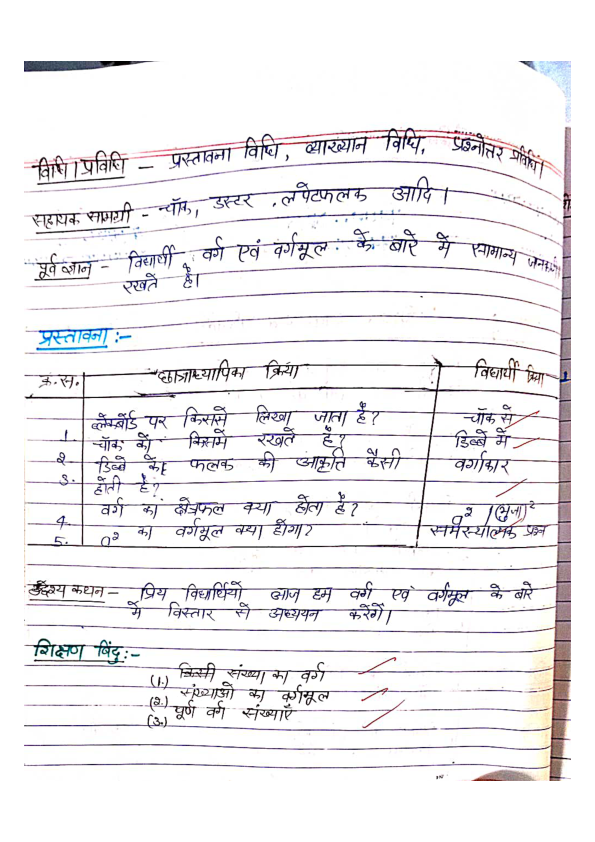 विधि/प्रविधि – प्रस्तावना विधि, व्याख्यान विधि, प्रश्नोत्तर प्रविधि।
सहायक सामग्री - चॉक, डस्टर, लपेटफलक आदि।
पूर्व ज्ञान - विद्यार्थी वर्ग एवं वर्गमूल के बारे में सामान्य जानकारी
रखते हैं।
प्रस्तावना :-
क्र.स. छात्राध्यापिका क्रिया विद्यार्थी क्रिया
1. ब्लेकबोर्ड पर किससे लिखा जाता है? चॉक से
2. चॉक को किसमें रखते हैं? डिब्बे में
3. डिब्बे के फलक की आकृति कैसी वर्गाकार
होती है?
4. वर्ग का क्षेत्रफल क्या होता है? a² / (भुजा)²
5. a² का वर्गमूल क्या होगा? समस्यात्मक प्रश्न
उद्देश्य कथन – प्रिय विद्यार्थियों आज हम वर्ग एवं वर्गमूल के बारे
में विस्तार से अध्ययन करेंगें।
शिक्षण बिंदु :-
(1.) किसी संख्या का वर्ग
(2.) संख्याओं का वर्गमूल
(3.) पूर्ण वर्ग संख्याएँ